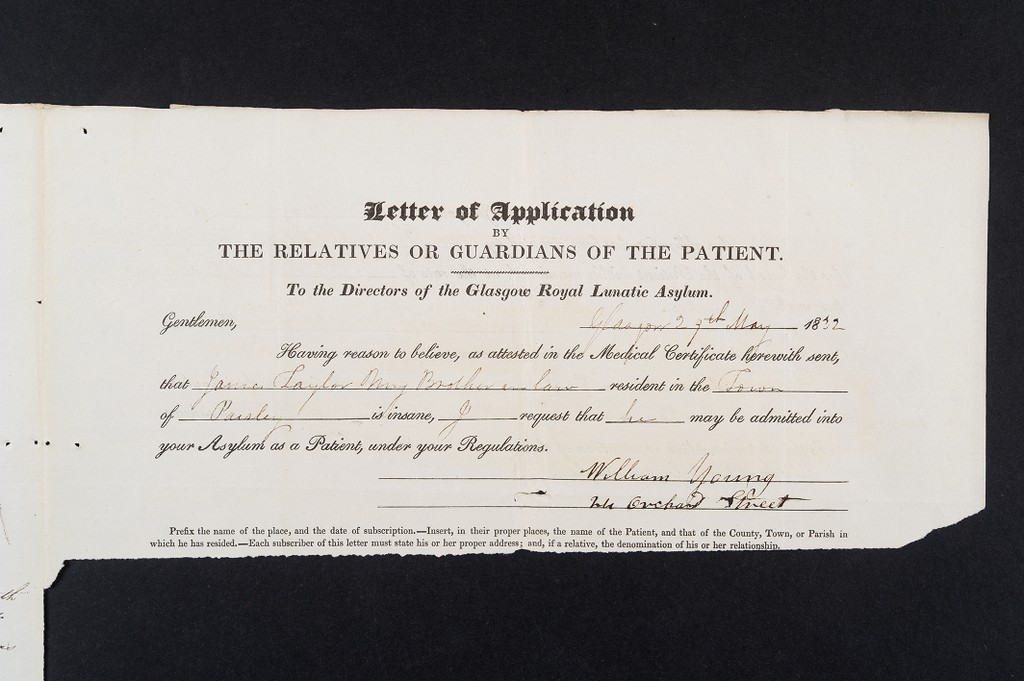 Letter of Application
BY
THE RELATIVES OR GUARDIANS OF THE PATIENT.
To the Directors of the Glasgow Royal Lunatic Asylum.
Gentlemen, Glasgow 29th May 1832
Having reason to believe, as attested in the Medical Certificate herewith sent,
that James Taylor My Brother in law resident in the Town
of Paisley is insane, I request that he may be admitted into
your Asylum as a Patient, under your Regulations.
William Young
Orchard Street
Prefix the name of the place, and the date of subscription.—Insert, in their proper places, the name of the Patient, and that of the County, Town, or Parish in
which he has resided.—Each subscriber of this letter must state his or her proper address; and, if a relative, the denomination of his or her relationship.